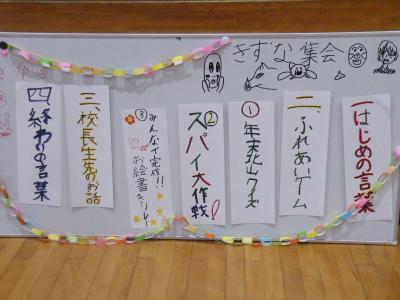 きずな集会
一はじめの言葉
二、ふれあいゲーム
①年末花山クイズ
②スパイ大作戦!
③みんなで完成!!
お絵書きリレー
三、校長先生のお話
四、終わりの言葉